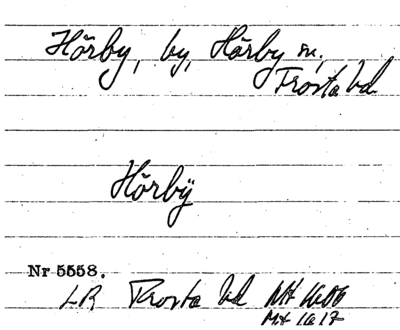 Hörby, by, Hörby sn,
Frosta hd
Hörbÿ
Nr 5558.
LR Frosta hd Mt 1606
Mt 1617